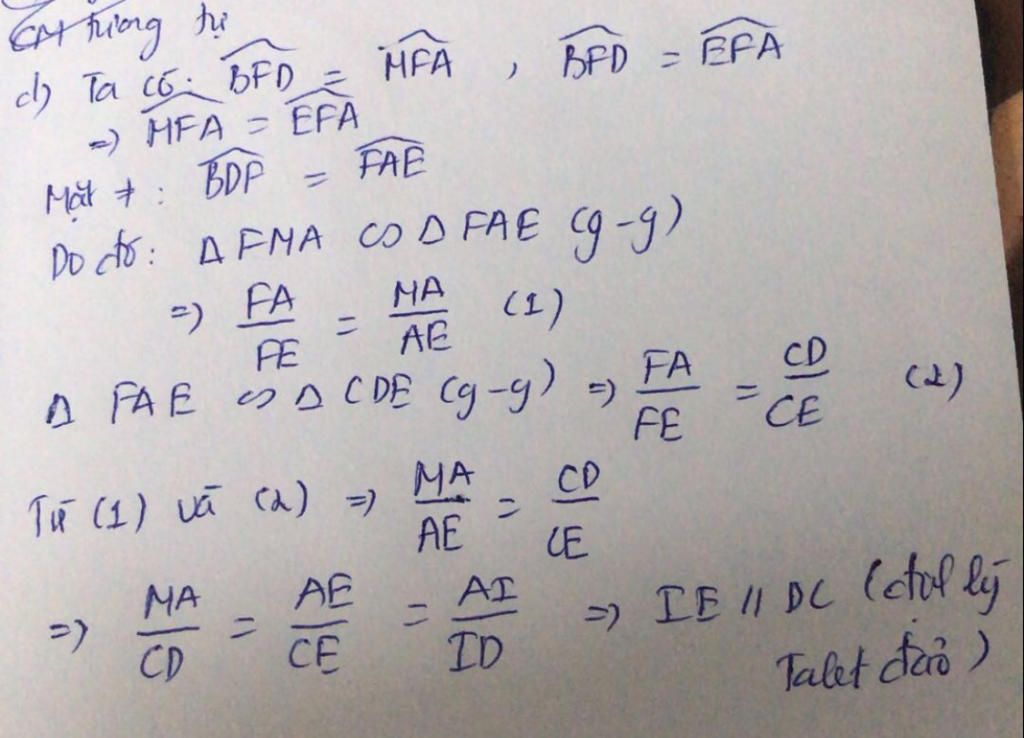 CM tương tự
d) Ta có: BFD = MFA , BFD = EFA
=> MFA = EFA
Mặt ≠ : BDF = FAE
Do đó: Δ FMA ∽ Δ FAE (g-g)
=> FA/FE = MA/AE (1)
Δ FAE ∽ Δ CDE (g-g) => FA/FE = CD/CE (2)
Từ (1) và (2) => MA/AE = CD/CE
=> MA/CD = AE/CE = AI/ID => IE // DC (định lý
Talet đảo)